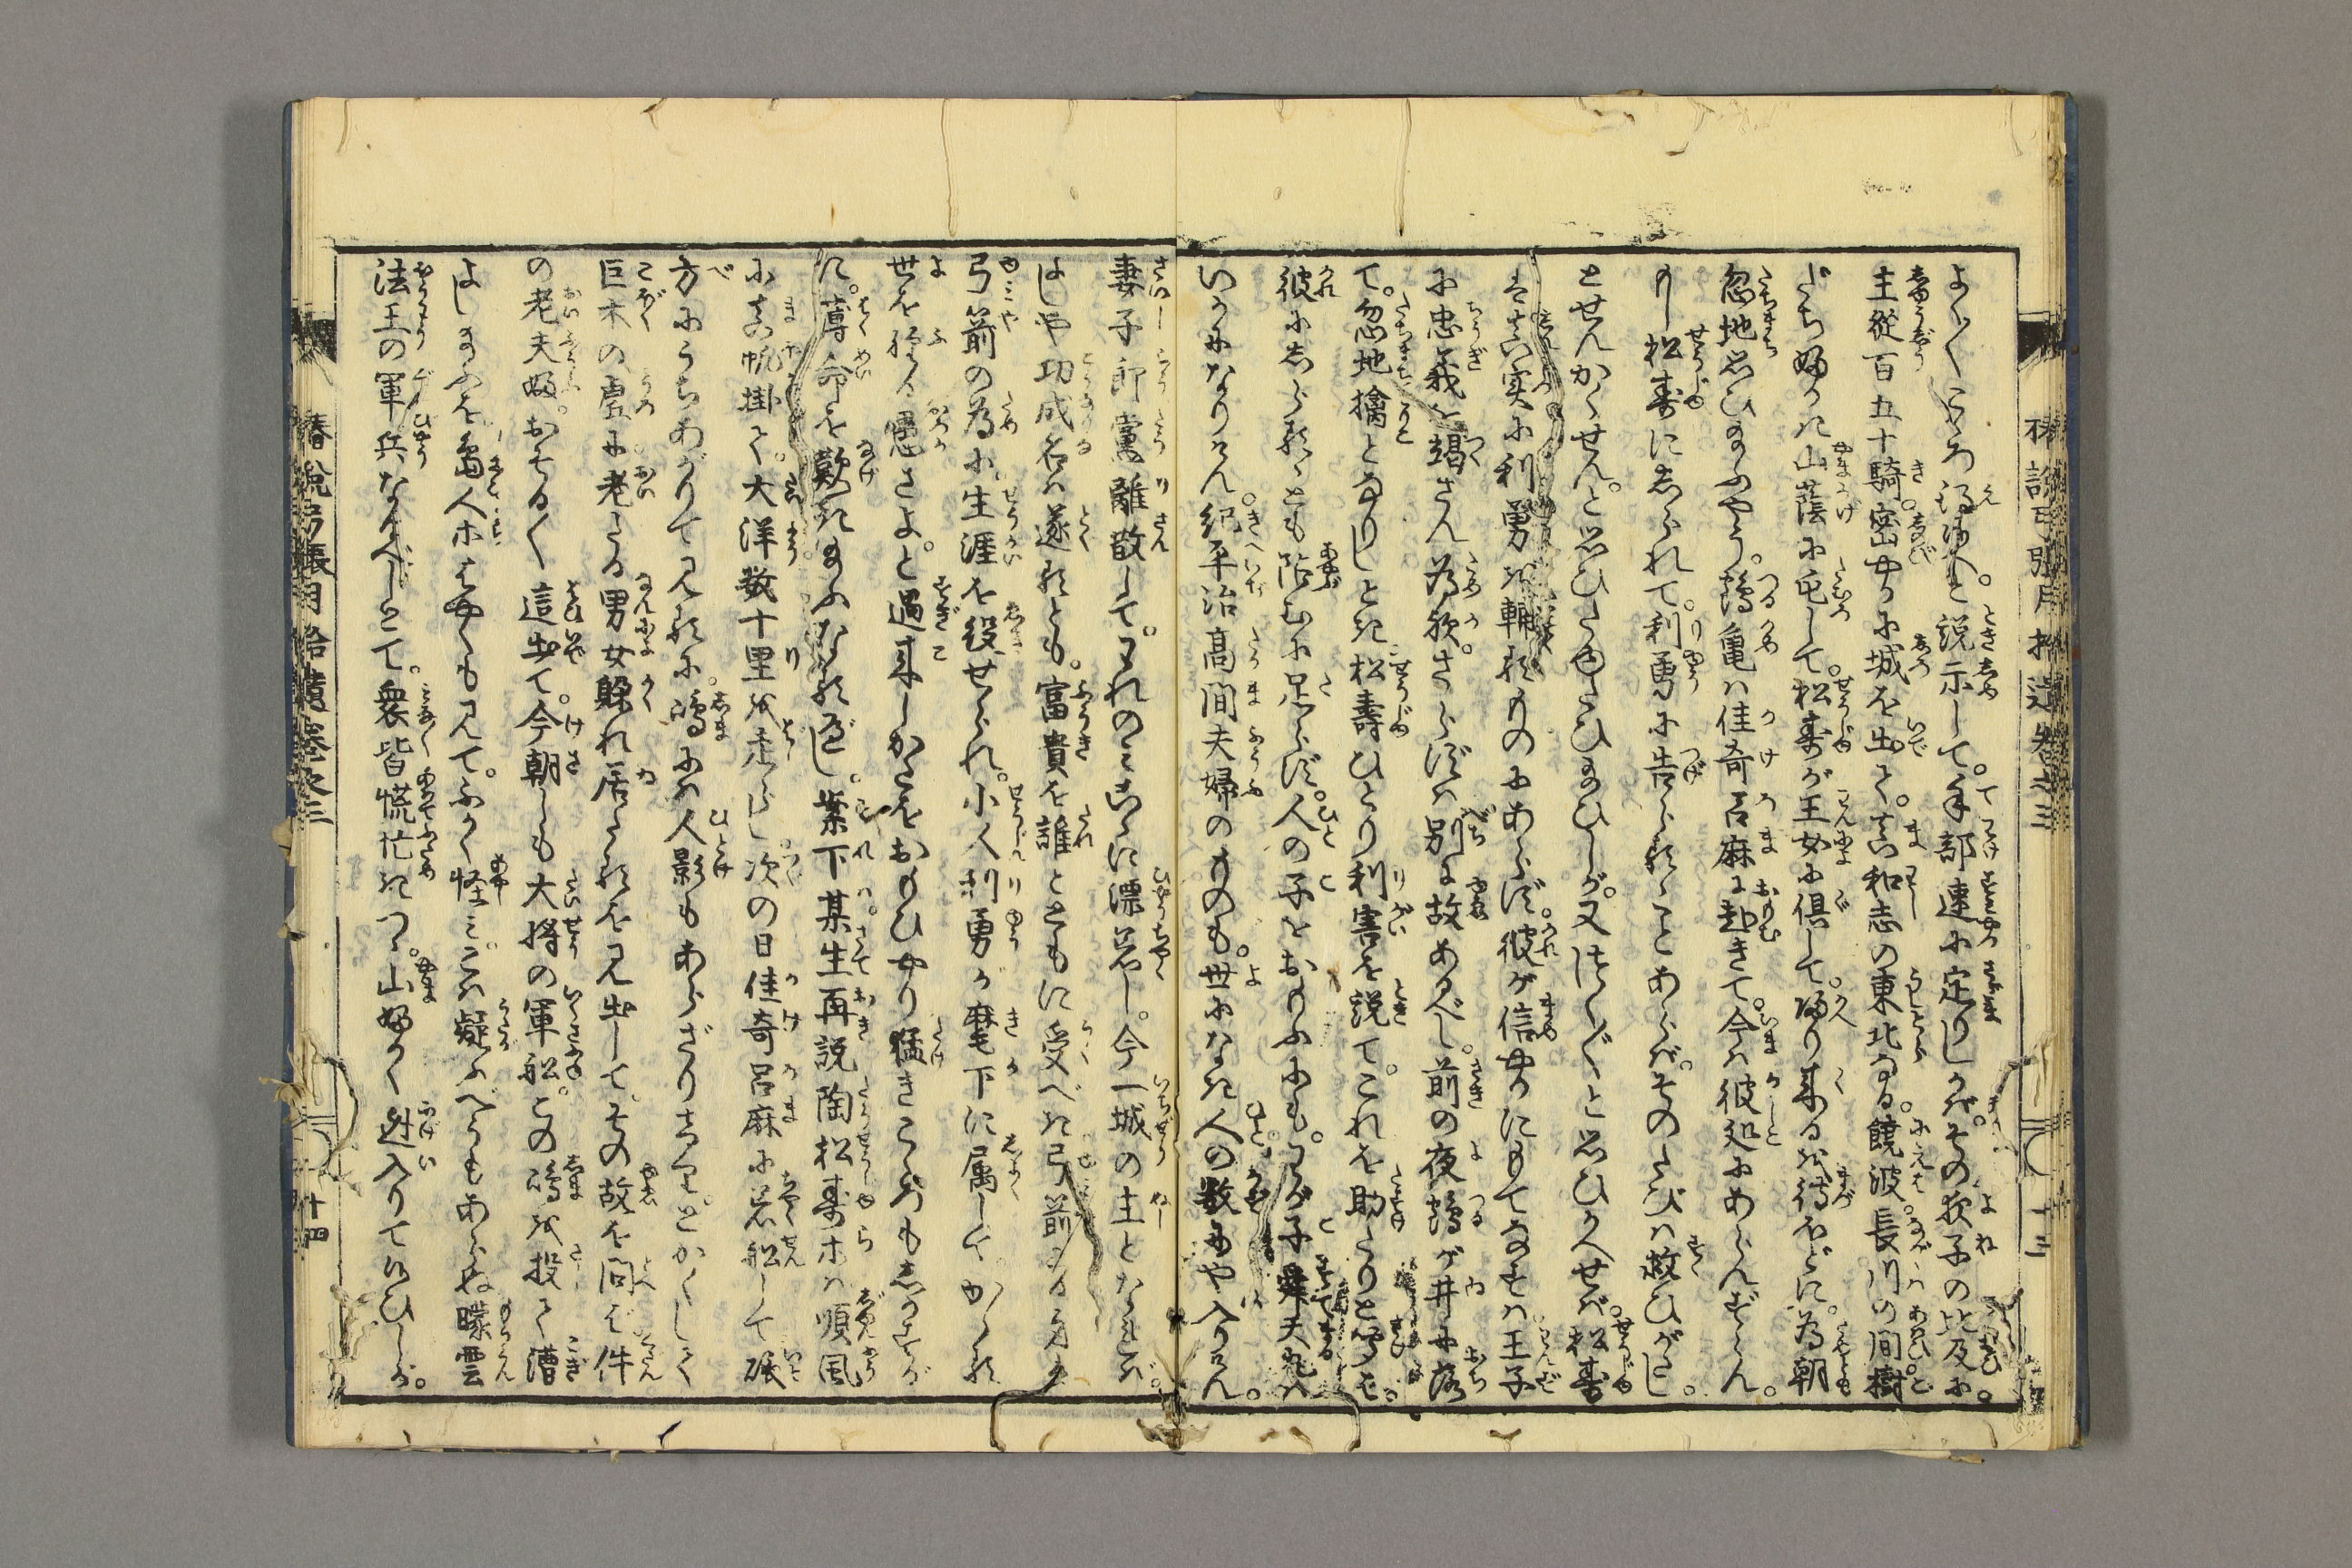 椿説弓張月拾遺巻之三
よく〳〵こゝろ得給へと説示して。手部速に定りしかば。その夜子の比及に
主従百五十騎。密やかに城を出て。真和志の東北なる。饒波。長川の間。樹
だち ふかき山蔭に屯して。松寿が王女に倶して。かへり来るを待ほどに。為朝
忽地思ひ給ふやう。鶴亀は佳奇呂麻に赴きて。今は彼処にあらんずらん。
もし松寿にしられて。利勇に告らるゝことあらば。そのたびは救ひがたし。
とせんかくせんと思ひたゆたひ給ひしが。又つく〴〵と思ひかへせば。松寿
は真実に利勇を輔るものにあらず。彼が信やかにもてなすは王子
に忠義を竭さん為歟。さらずは別に故あるべし。前の夜鶴が井に落
て。忽地擒となりしとき松寿ひとり利害を説て。これを助たりと
彼にしらるゝとも 阽むに足らず。人の子をおもふにも。わが子舜天丸は
いかになりけん。紀平治高間夫婦のものも。世になき人の数にや入りけん。
妻子郎党離散して。われのみこゝに漂泊し。今一城の主となれば。
はじや功成名は遂るとも。富貴を誰とともに受べき弓箭とる身は
弓箭の為に。生涯を役せられ。小人利勇が麾下に属して。かゝる
世を経る愚さよ。と過来しかたをおもひやり猛きこゝろもしかすが
に。薄命を歎き給ふなるべし。案下某生再説陶松寿等は順風
に真帆掛て。大洋数十里を走らし。次の日佳奇呂麻に着船して磯
方にうちあがりて見るに。嶋には人影もあらざりけり。とかくして
巨木の虚に老たる男女躱れ居たるを見出して。その故を問ば件
の老夫婦。おそる〳〵這出て。今朝しも大将の軍船。この嶋を投て漕
よし給ふを嶋人等はやくも見て。ふかく怪み。こは疑ふべうもあらぬ曚雲
法王の軍兵なるべしとて。衆皆慌忙きつゝ。山ふかく迯入りて候ひしが。
椿説弓張月拾遺巻之三
十四